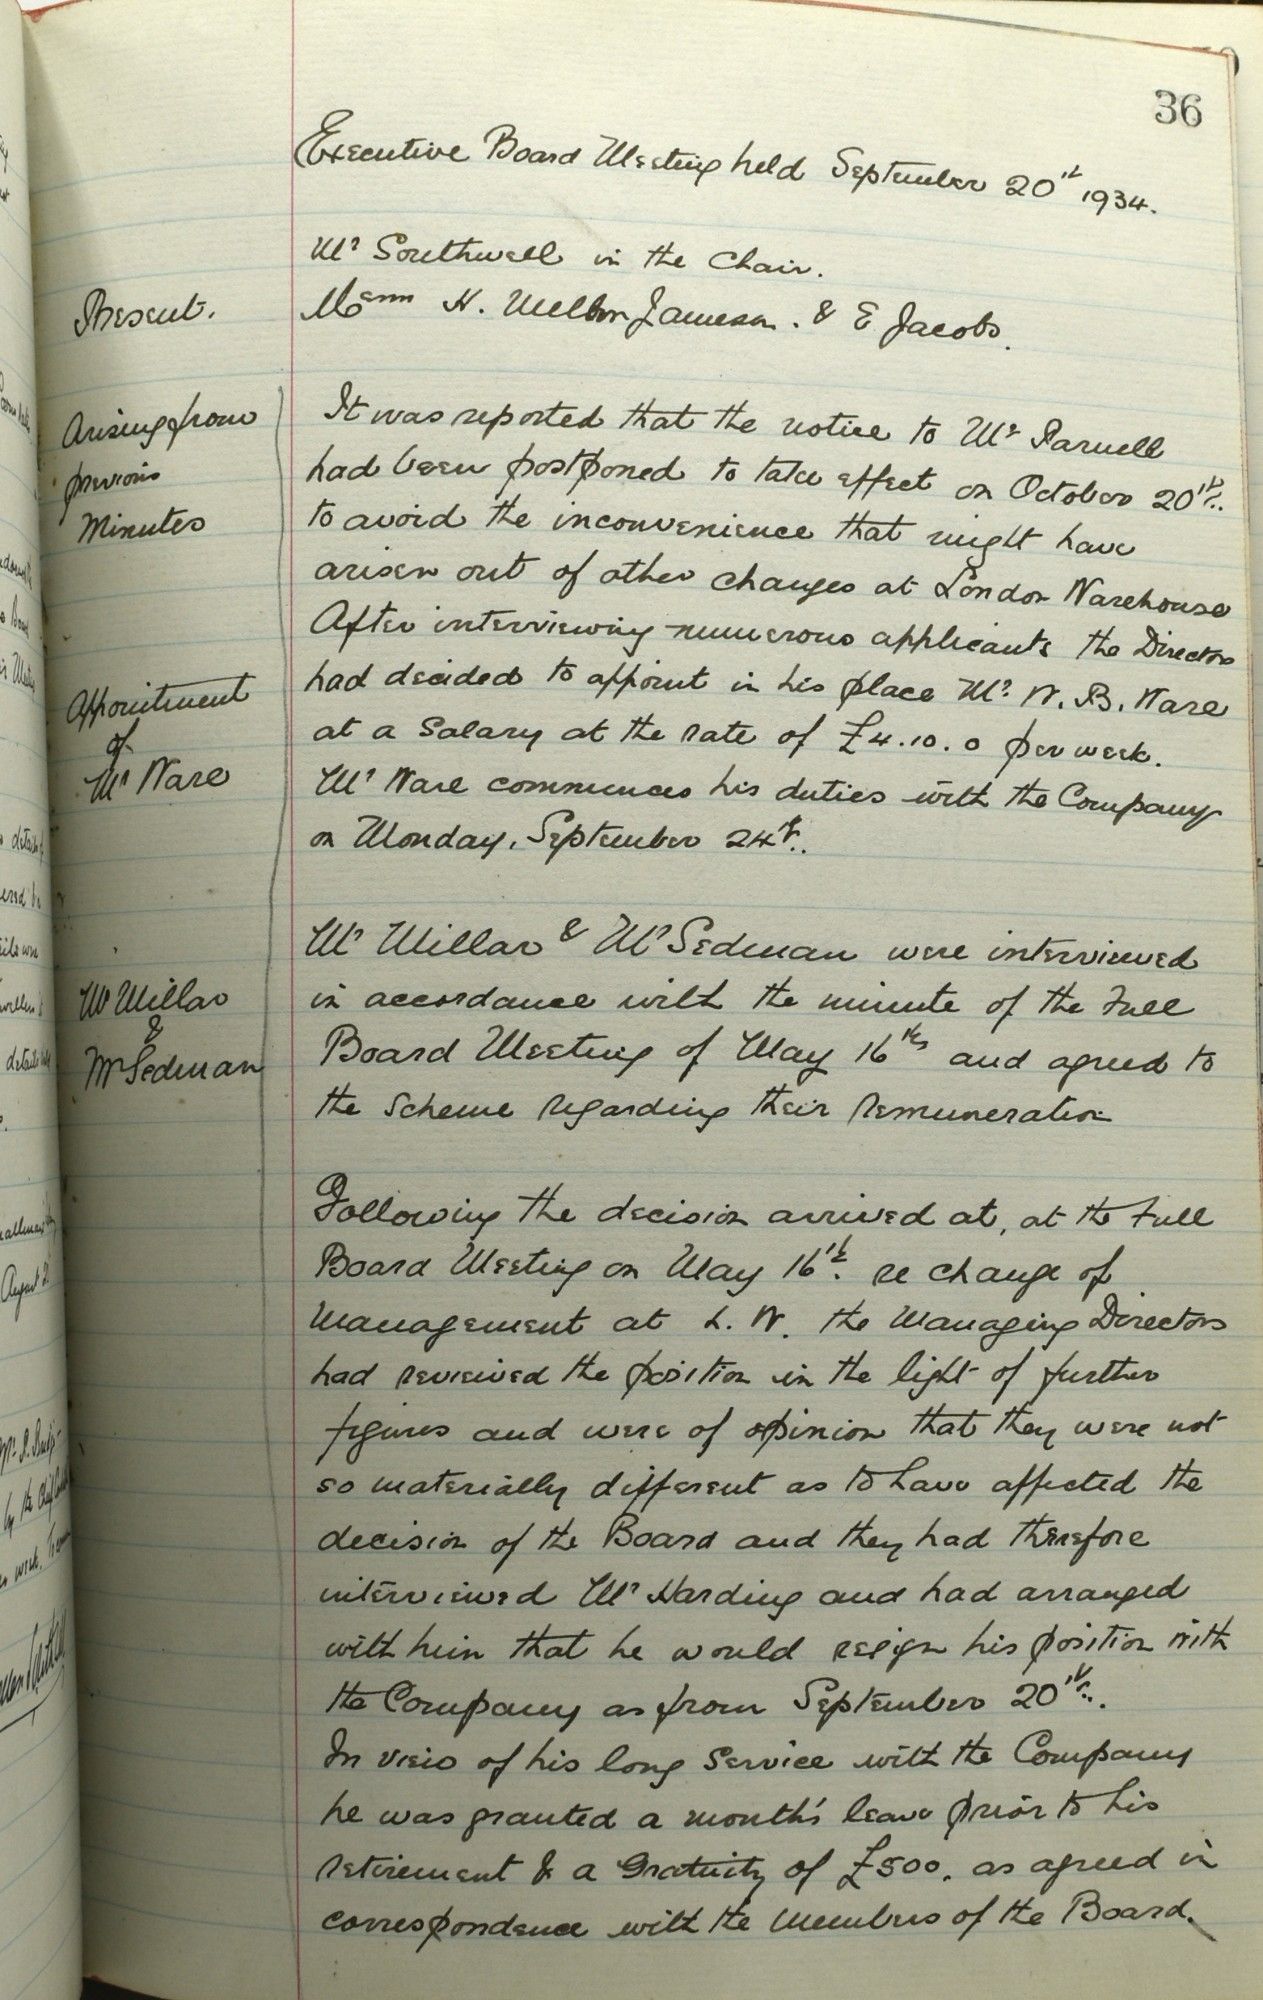 36
Executive Board Meeting held September 20th 1934.
Mr Southwell in the Chair.
Present. Messrs H. Wilbur Jameson. & E Jacobs.
Arising from
previous
Minutes
It was reported that the notice to Mr Parnell
had been postponed to take effect on October 20th.
to avoid the inconvenience that might have
arisen out of other changes at London Warehouse
After interviewing numerous applicants the Directors
had decided to appoint in his place Mr W. B. Ware
at a salary at the rate of £4.10.0 per week.
Mr Ware commences his duties with the Company
on Monday, September 24th.
Appointment
of
Mr Ware
Mr Millar & Mr Sedman were interviewed
in accordance with the minute of the Full
Board Meeting of May 16th and agreed to
the scheme regarding their remuneration
Mr Millar
&
Mr Sedman
Following the decision arrived at, at the Full
Board Meeting on May 16th. re change of
Management at L. W. the Managing Directors
had reviewed the position in the light of further
figures and were of opinion that they were not
so materially different as to have affected the
decision of the Board and they had therefore
interviewed Mr Harding and had arranged
with him that he would resign his position with
the Company as from September 20th.
In view of his long service with the Company
he was granted a month's leave prior to his
retirement & a Gratuity of £500. as agreed in
correspondence with the Members of the Board.